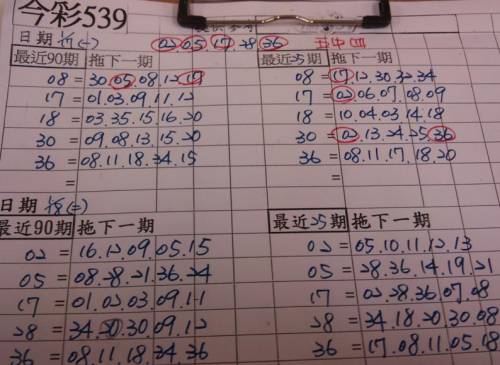 今彩539
日期 1/7(二) 02 05 17 28 36 五中四
最近90期 拖下一期 最近25期 拖下一期
08 = 30.05.08.12.17 08 = 17.12.30.32.34
17 = 01.03.09.11.12 17 = 02.06.07.08.09
18 = 03.35.15.16.20 18 = 10.04.03.14.18
30 = 09.08.13.15.20 30 = 02.13.24.25.36
36 = 08.11.18.34.15 36 = 08.11.17.18.20
=
日期 1/8(三)
最近90期 拖下一期 最近25期 拖下一期
02 = 16.12.09.05.15 02 = 05.10.11.12.13
05 = 08.28.21.36.24 05 = 28.36.14.19.21
17 = 01.02.03.09.11 17 = 02.28.36.07.08
28 = 34.20.30.09.12 28 = 34.18.20.30.08
36 = 08.11.18.34.36 36 = 17.08.11.05.18